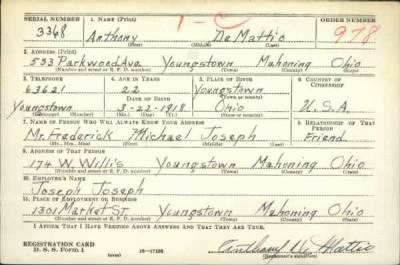 SERIAL NUMBER 1. NAME (Print) ORDER NUMBER
1-C
3368 Anthony De Mattio 978
(First) (Middle) (Last)
2. ADDRESS (Print)
533 Parkwood Ave. Youngstown Mahoning Ohio
(Number and street or R. F. D. number) (Town) (County) (State)
3. TELEPHONE 4. AGE IN YEARS 5. PLACE OF BIRTH 6. COUNTRY OF CITIZENSHIP
63621 22 Youngstown
(Town or county)
DATE OF BIRTH
Youngstown 3-22-1918 Ohio U.S.A.
(Exchange) (Number) (Mo.) (Day) (Yr.) (State or country)
7. NAME OF PERSON WHO WILL ALWAYS KNOW YOUR ADDRESS 8. RELATIONSHIP OF THAT PERSON
Mr. Frederick Michael Joseph Friend
(Mr., Mrs., Miss) (First) (Middle) (Last)
9. ADDRESS OF THAT PERSON
174 W. Willis Youngstown Mahoning Ohio
(Number and street or R. F. D. number) (Town) (County) (State)
10. EMPLOYER'S NAME
Joseph Joseph
11. PLACE OF EMPLOYMENT OR BUSINESS
1301 Market St Youngstown Mahoning Ohio
(Number and street or R. F. D. number) (Town) (County) (State)
I AFFIRM THAT I HAVE VERIFIED ABOVE ANSWERS AND THAT THEY ARE TRUE.
REGISTRATION CARD
D. S. S. Form 1 (over) 16-17105 Anthony De Mattio
(Registrant's signature)